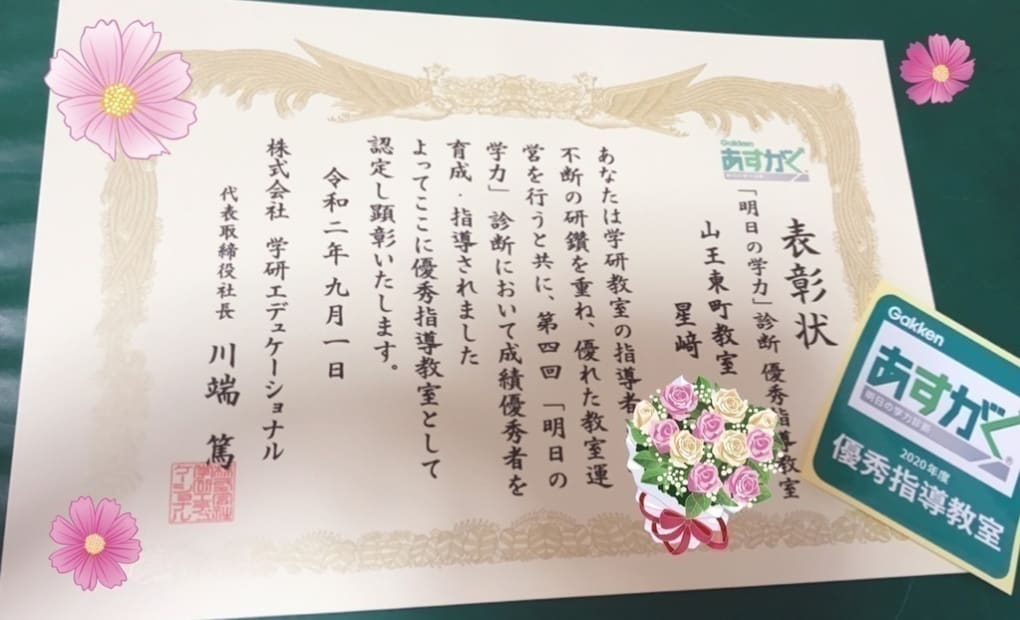 表彰状
Gakken
あすがく
「明日の学力」診断 優秀指導教室
山王東町教室
星﨑
あなたは学研教室の指導者
不断の研鑽を重ね、優れた教室運
営を行うと共に、第四回「明日の
学力」診断において成績優秀者を
育成・指導されました
よってここに優秀指導教室として
認定し顕彰いたします。
令和二年九月一日
株式会社 学研エデュケーショナル
代表取締役社長 川端 篤
Gakken
あすがく
明日の学力診断
2020年度
優秀指導教室